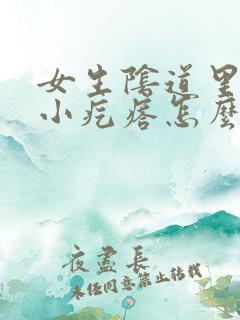 女生陰道里
小疙瘩怎麼
夜盡長
未经同意禁止转载